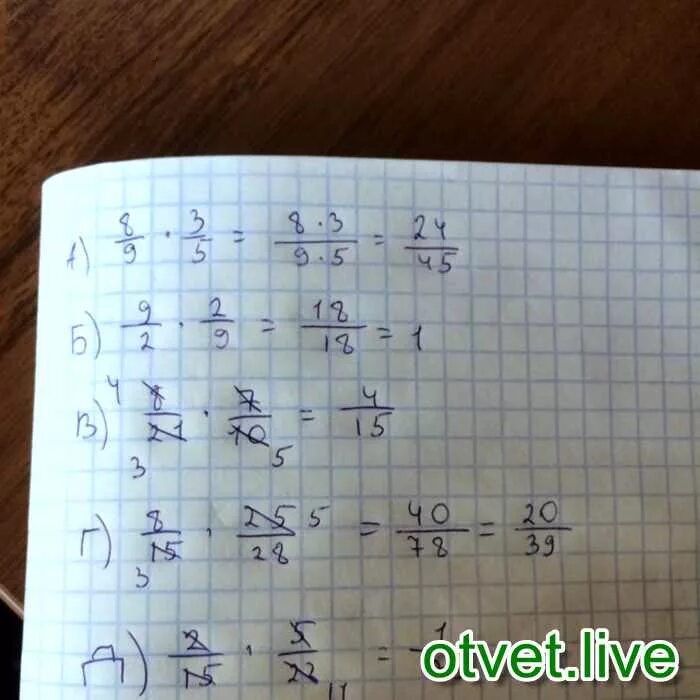 А) 8/9 · 3/5 = 8·3/9·5 = 24/45
Б) 9/2 · 2/9 = 18/18 = 1
В) 4 8/21 3 · 7/10 5 = 4/15
Г) 8/15 3 · 25/28 5 = 40/78 = 20/39
Д) 2/15 · 5/22 11 = 1
otvet.live